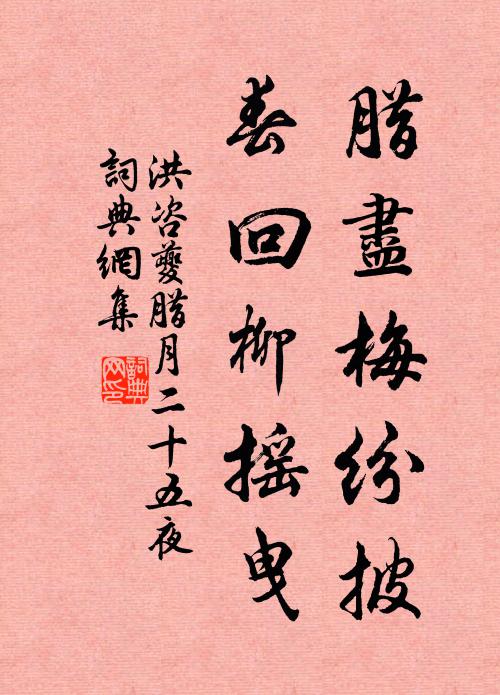 腊盡梅紛披
春回柳摇曳
洪咨夔腊月二十五夜
詞典網集
詞典网印